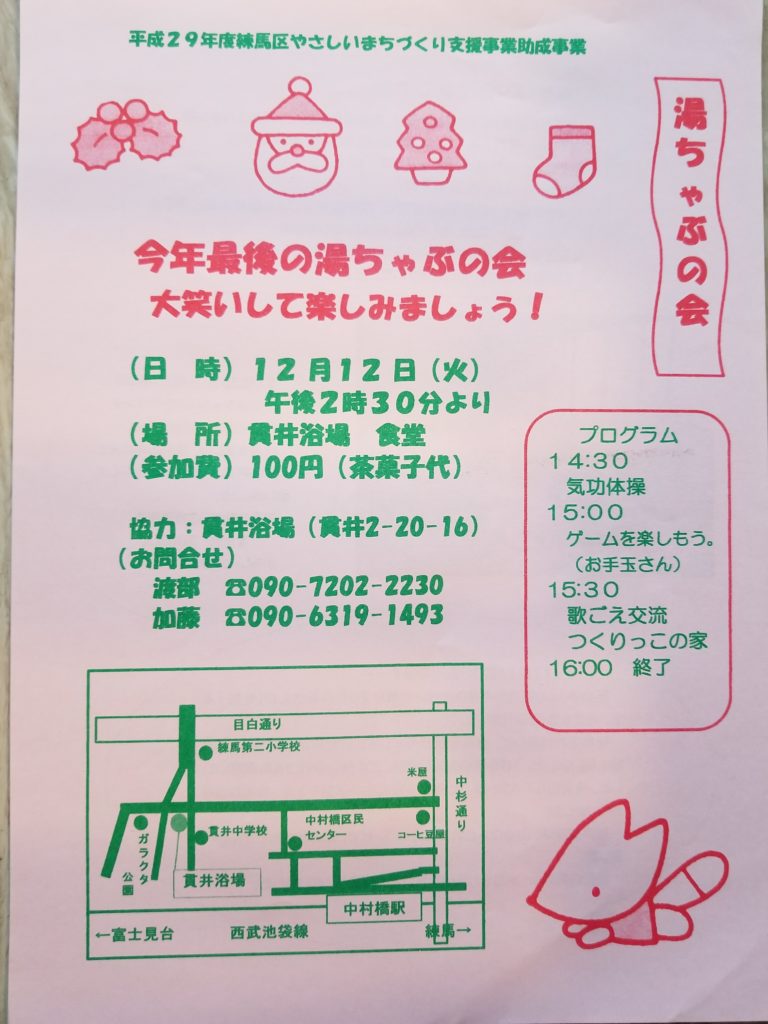 平成29年度練馬区やさしいまちづくり支援事業助成事業
湯ちゃぶの会
今年最後の湯ちゃぶの会
大笑いして楽しみましょう！
（日　時）12月12日（火）
午後2時30分より
（場　所）貫井浴場　食堂
（参加費）100円（茶菓子代）
協力：貫井浴場（貫井2-20-16）
（お問合せ）
渡部　☎090-7202-2230
加藤　☎090-6319-1493
プログラム
14:30
気功体操
15:00
ゲームを楽しもう。
（お手玉さん）
15:30
歌ごえ交流
つくりっこの家
16:00　終了
目白通り
練馬第二小学校
米屋
中杉通り
ガラクタ
公園
貫井中学校
中村橋区民
センター
コーヒ豆屋
貫井浴場
中村橋駅
←富士見台　西武池袋線　練馬→